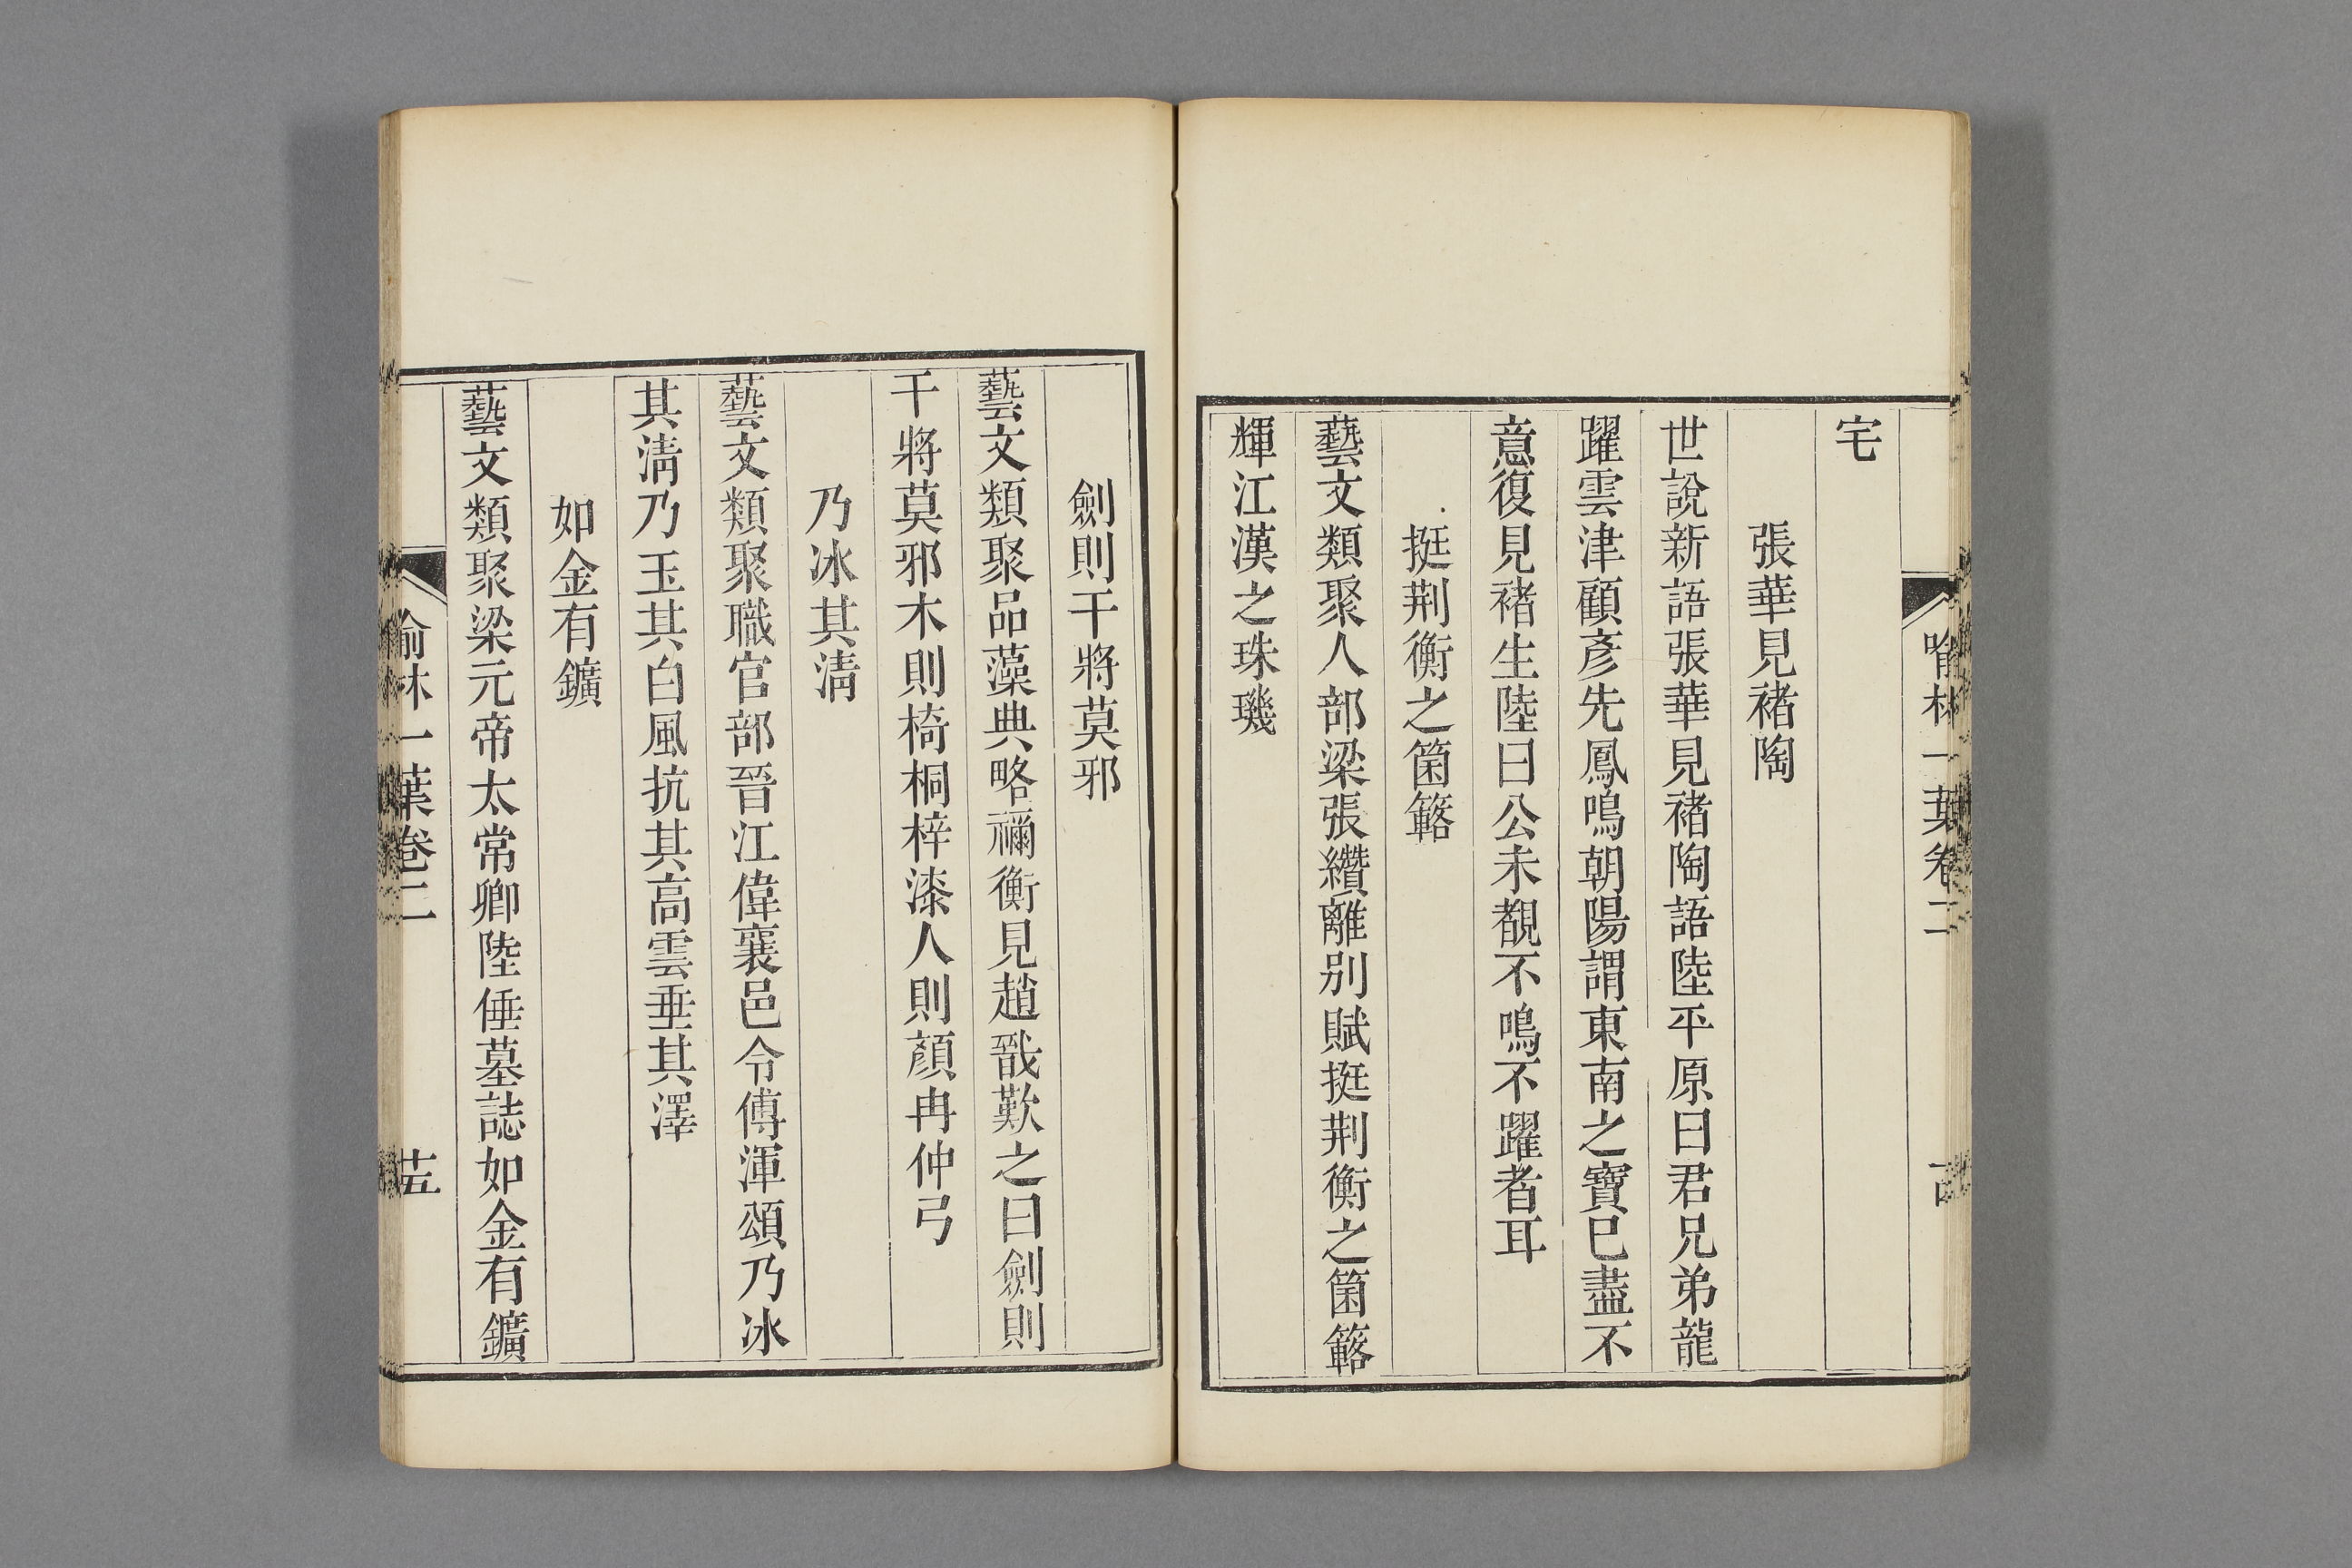 喻林一葉卷二
宅
張華見褚陶
世說新語張華見褚陶語陸平原曰君兄弟龍
躍雲津顧彥先鳳鳴朝陽謂東南之寶已盡不
意復見褚生陸曰公未覩不鳴不躍者耳
挺荆衡之箘簵
藝文類聚人部梁張纘離別賦挺荆衡之箘簵
輝江漢之珠璣
劍則干將莫邪
藝文類聚品藻典略禰衡見趙戩歎之曰劍則
干將莫邪木則椅桐梓漆人則顏冉仲弓
乃冰其淸
藝文類聚職官部晉江偉襄邑令傅渾頌乃冰
其淸乃玉其白風抗其高雲垂其澤
如金有鑛
藝文類聚梁元帝太常卿陸倕墓誌如金有鑛
喻林一葉卷二